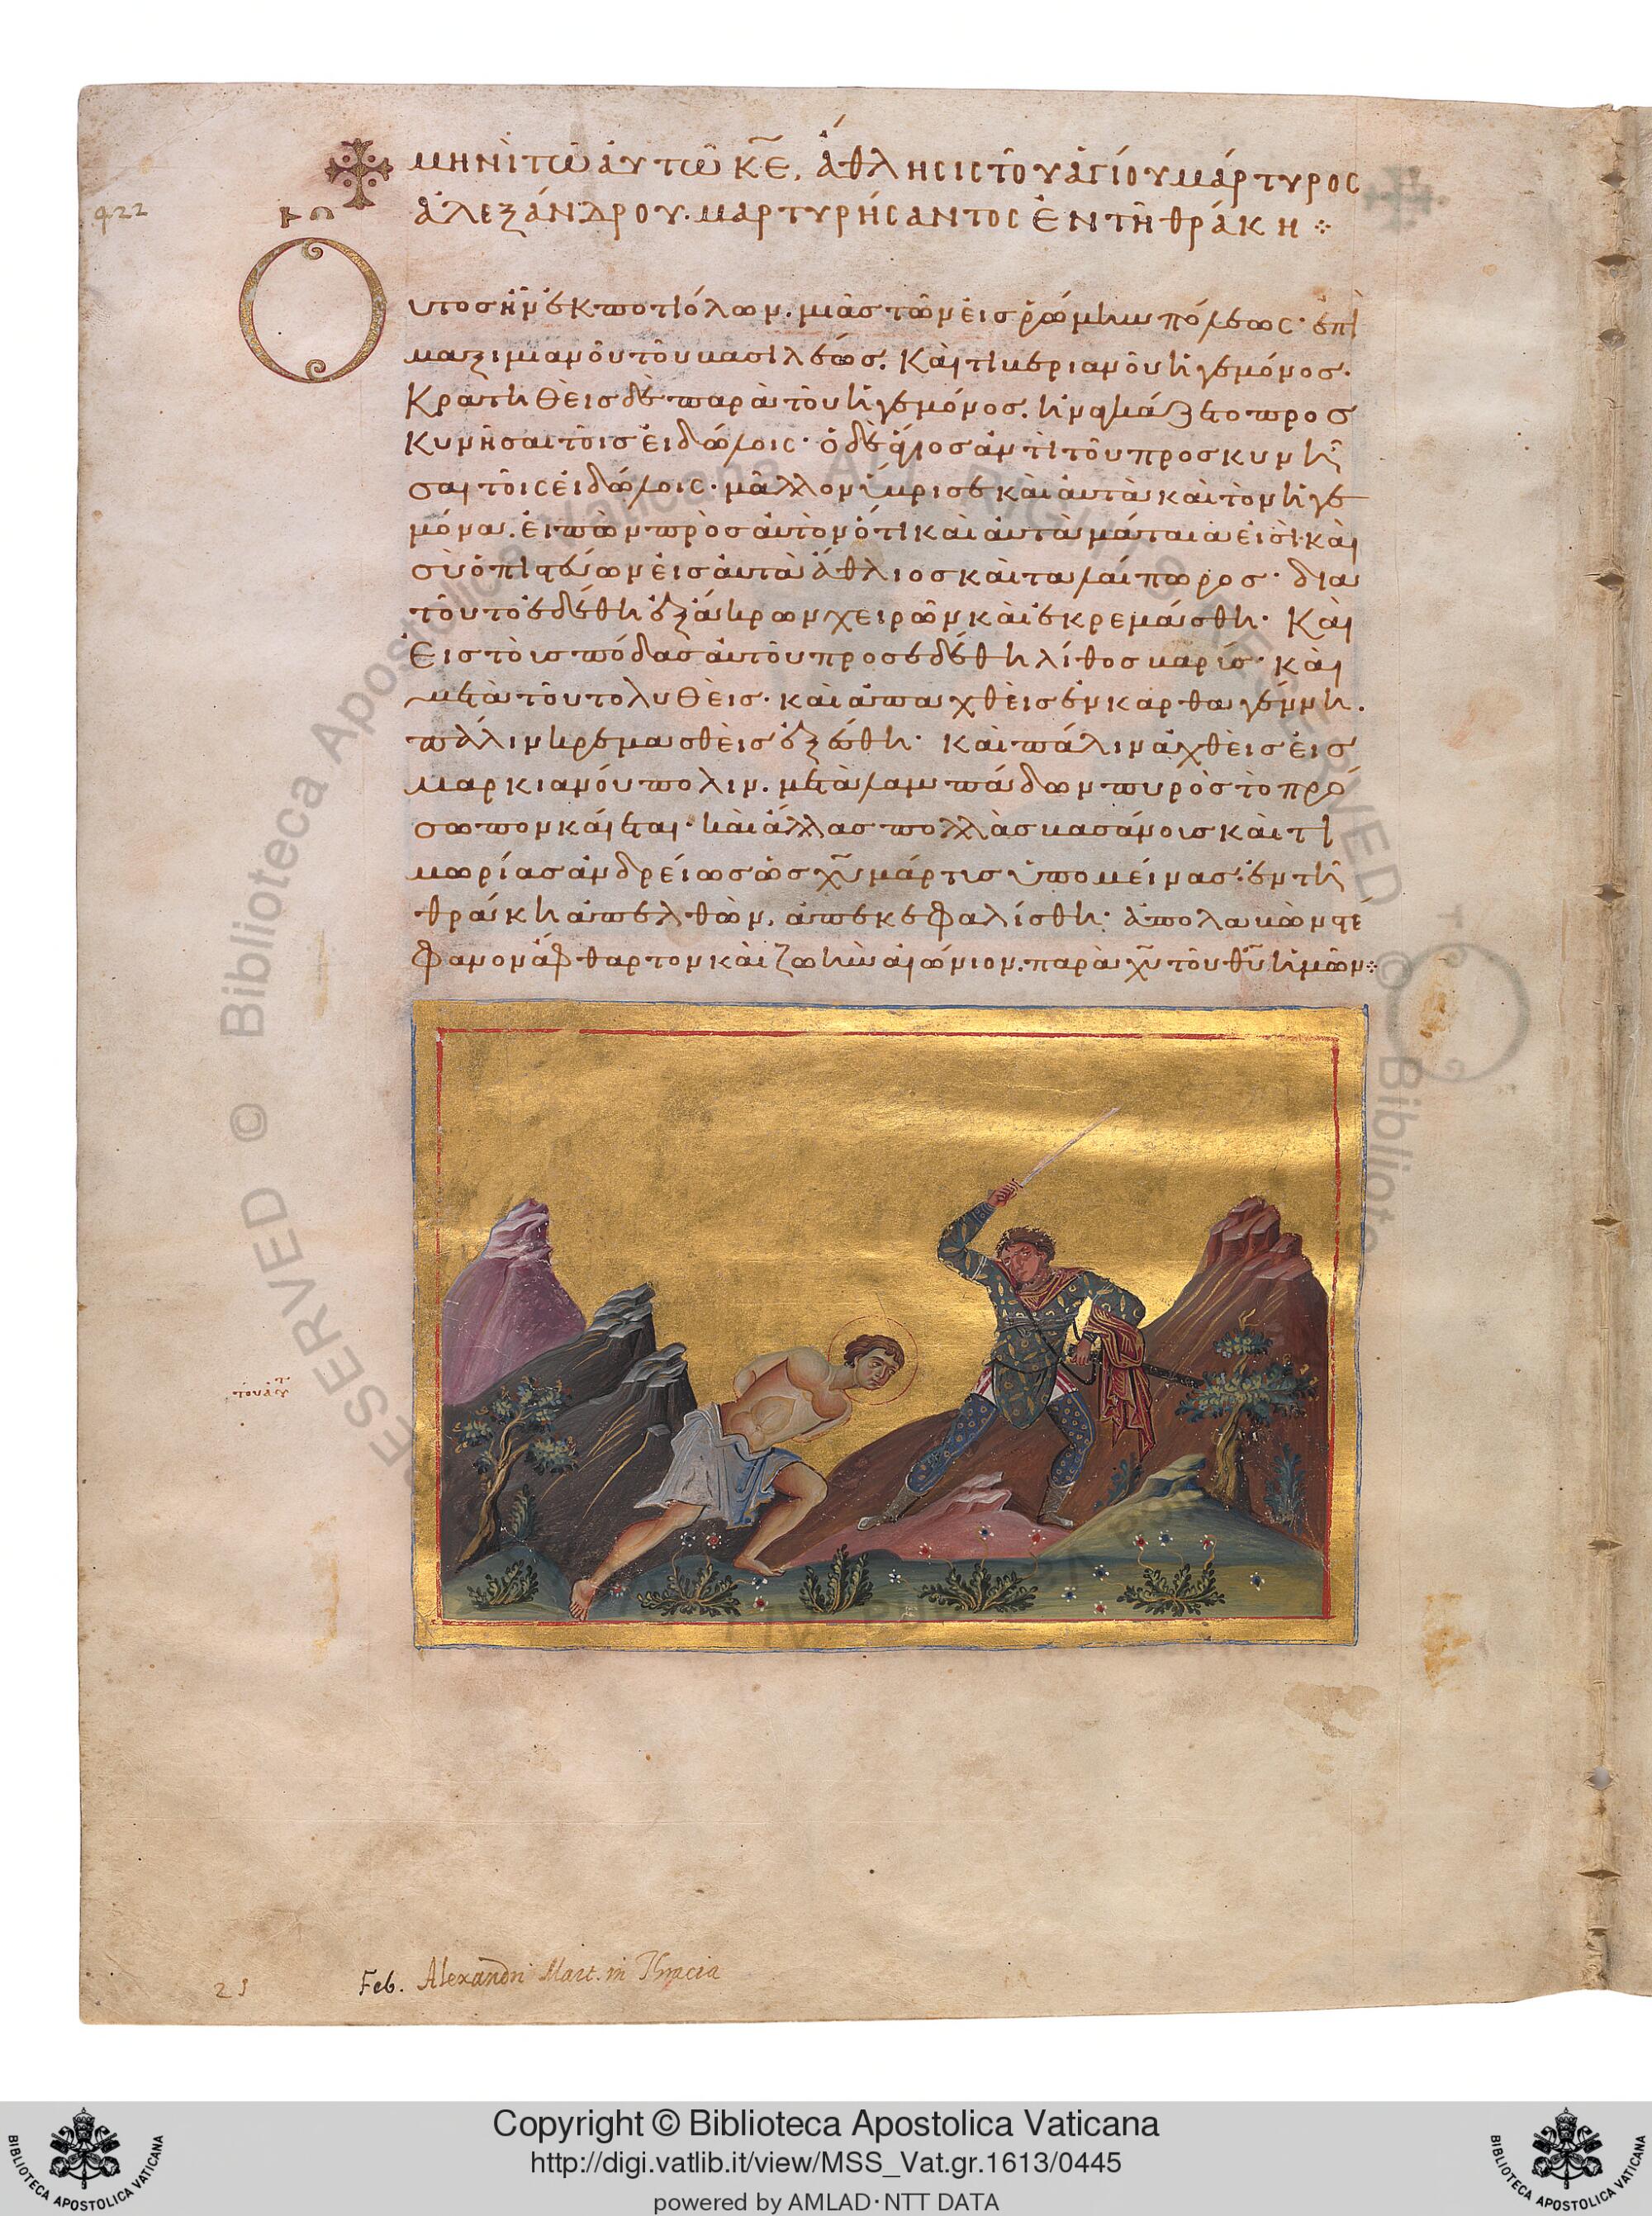 422
ΜΗΝῚ ΤΩ͂ ΑΥΤΩ͂ ΚΕ̅, ἌΘΛΗϹΙϹ ΤΟΥ͂ ἉΓΊΟΥ ΜΆΡΤΥΡΟϹ
ἈΛΕΞΆΝΔΡΟΥ· ΜΑΡΤΥΡΉϹΑΝΤΟϹ ἘΝ ΤΗ͂ ΘΡΆΚΗ
Οὗτος ἦν ἐκ ποτιόλων. μιᾶς τῶν εἰς ῥώμην πόλεως· ἐπὶ
μαξιμιανοῦ τοῦ βασιλέως. καὶ τιβεριανοῦ ἡγεμόνος.
Κρατηθεὶς δὲ παρὰ τοῦ ἡγεμόνος. ἠναγκάζετο προσ
κυνῆσαι τοῖς εἰδώλοις· ὁ δὲ ἅγιος ἀντὶ τοῦ προσκυνῆ
σαι τοῖς εἰδώλοις· μᾶλλον ὕβρισε καὶ αὐτὰ καὶ τὸν ἡγε
μόνα. εἰπὼν πρὸς αὐτὸν ὅτι καὶ αὐτὰ μάταια εἰσὶ· καὶ
σὺ ὁ πιστεύων εἰς αὐτὰ ἄθλιος καὶ ταλαίπωρος· δια
τοῦτο ἐδέθη ἐξ ἄκρων χειρῶν καὶ ἐκρεμάσθη· Καὶ
Εἰς τοὺς πόδας αὐτοῦ προσεδέθη λίθος βαρύς· καὶ
μετὰ τοῦτο λυθεὶς· καὶ ἀπαχθεὶς ἐν καρθαγέννη.
πάλιν κρεμασθεὶς ἐξέσθη· Καὶ πάλιν ἀχθεὶς εἰς
μαρκιανούπολιν. μετὰ λαμπάδων πυρὸς τὸ πρό
σωπον καίεται· καὶ ἄλλας πολλὰς βασάνους καὶ τι
μωρίας ἀνδρείως ὡς χυ̅ μάρτυς ὑπομείνας· ἐν τῆ
θράκη ἀπελθὼν, ἀπεκεφαλίσθη· ἀπολαβὼν στέ
φανον ἄφθαρτον καὶ ζωὴν αἰώνιον. παρὰ χυ̅ τοῦ θυ̅ ἡμῶν
Feb. Alexandri Mart. in Thracia
25
Copyright © Biblioteca Apostolica Vaticana
http://digi.vatlib.it/view/MSS_Vat.gr.1613/0445
powered by AMLAD·NTT DATA
BIBLIOTECA APOSTOLICA VATICANA
BIBLIOTECA APOSTOLICA VATICANA